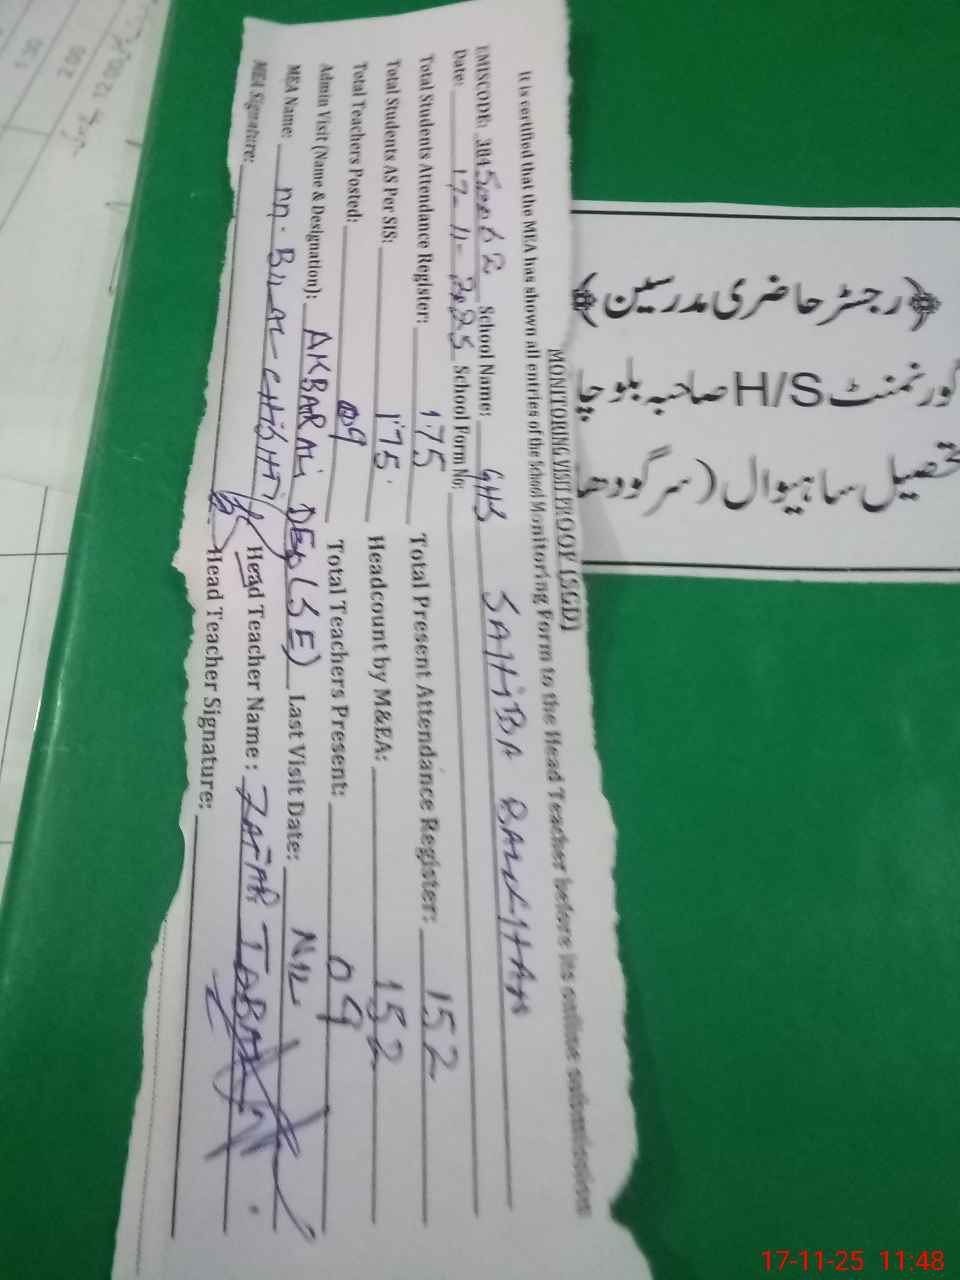 MONITORING VISIT PROOF (SGD)
It is certified that the MEA has shown all entries of the School Monitoring Form to the Head Teacher before its online submission
EMISCODE: 38450062 School Name: GHS SAHIBA BALUCHAN
Date: 17-11-2025 School Form No:
Total Students Attendance Register: 175 Total Present Attendance Register: 152
Total Students AS Per SIS: 175 Headcount by M&EA: 152
Total Teachers Posted: 09 Total Teachers Present: 09
Admin Visit (Name & Designation): AKBAR ALi DEO (SE) Last Visit Date: NIL
MEA Name: M. BILAL CHISHTI Head Teacher Name: ZAFAR IQBAL
MEA Signature: Head Teacher Signature:
﴿رجسٹر حاضری مدرسین﴾
گورنمنٹ H/S صاحبہ بلوچا
تحصیل ساہیوال (سرگودھا
1.30
2.00
12.00
17-11-25 11:48